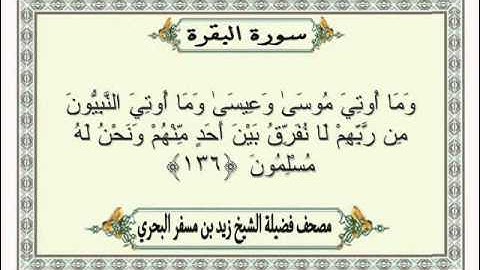 سورة البقرة
وَمَا أُوتِيَ مُوسَىٰ وَعِيسَىٰ وَمَا أُوتِيَ النَّبِيُّونَ
مِن رَّبِّهِمْ لَا نُفَرِّقُ بَيْنَ أَحَدٍ مِّنْهُمْ وَنَحْنُ لَهُ
مُسْلِمُونَ ﴿١٣٦﴾
مصحف فضيلة الشيخ زيد بن مسفر البحري